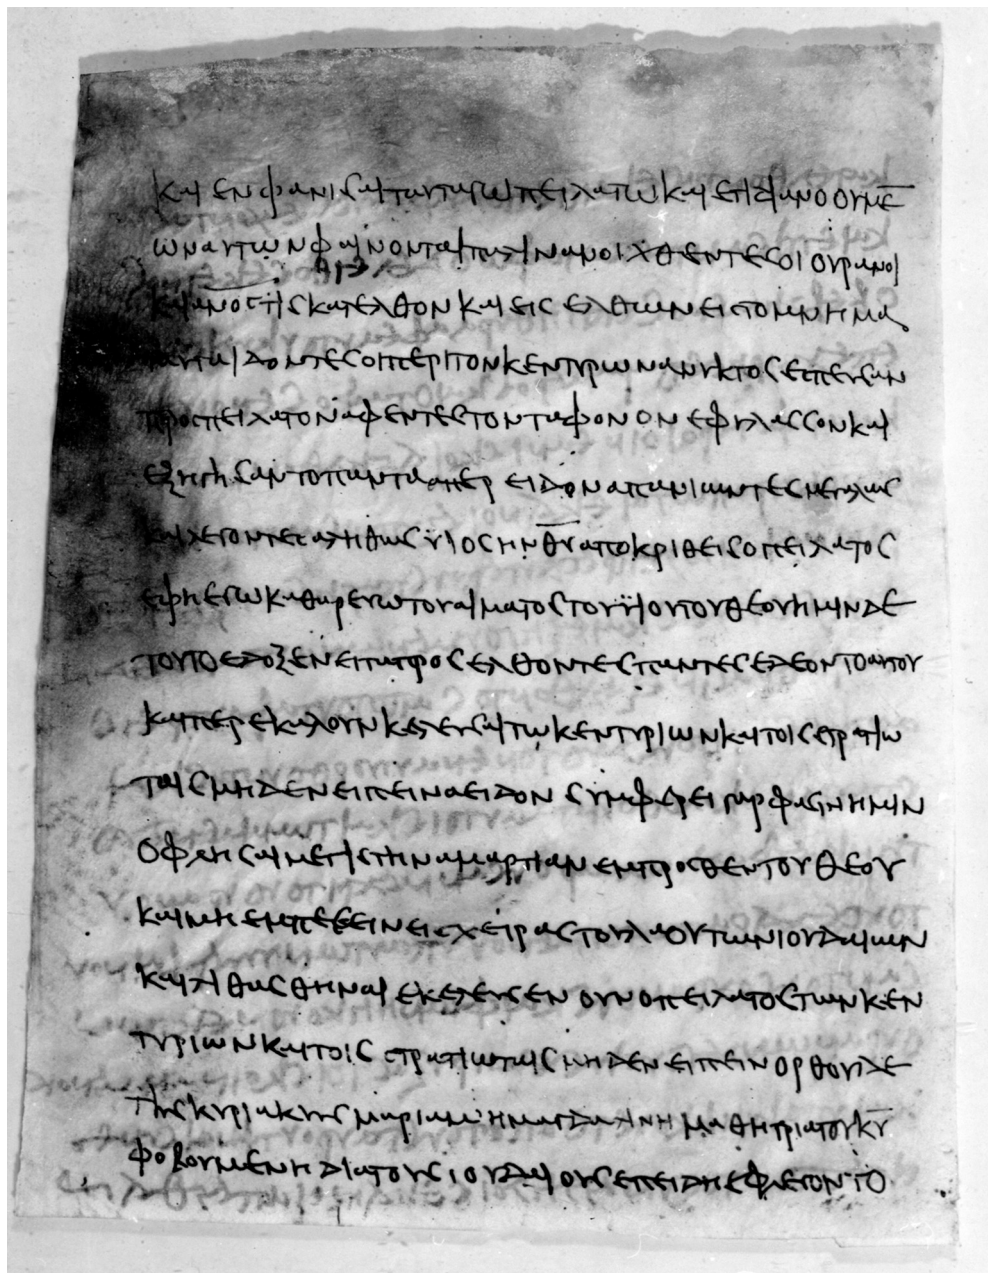 και ενφανισαι ταυτα τω πειλατω και ετι διανοουμε
ων αυτων φαινονται παλιν ανοιχθεντες οι ουρανοι
και ανος τις κατελθον και εις ελθων εις το μνημα
ταυτα ιδοντες οι περι τον κεντυρωνα νυκτος επευσαν
προς πειλατον αφεντες τον ταφον ον εφυλασσον και
εξηγησαντο παντα απερ ειδον απανιωντες μεγαλως
και λεγοντες αληθως υιος ην θυ αποκριθεις ο πειλατος
εφη εγω καθαρευω του αιματος του υιου του θεου ημιν δε
τουτο εδοξεν ειτα προσελθοντες παντες εδεοντο αυτου
και περεκαλουν κελευσαι τω κεντυριων και τοις στρατιω
ταις μηδεν ειπειν α ειδον συμφερει γαρ φασιν ημιν
οφλησαι μεγιστην αμαρτιαν εμπροσθεν του θεου
και μη εμπεσειν εις χειρας του λαου των ιουδαιων
και λιθασθηναι εκελευσεν ουν ο πειλατος των κεν
τυριων και τοις στρατιωταις μηδεν ειπειν ορθου δε
της κυριακης μαριαμ η μαγδαλινη μαθητρια του κυ
φοβουμενη δια τους ιουδαιους επειδη εφλεγοντο